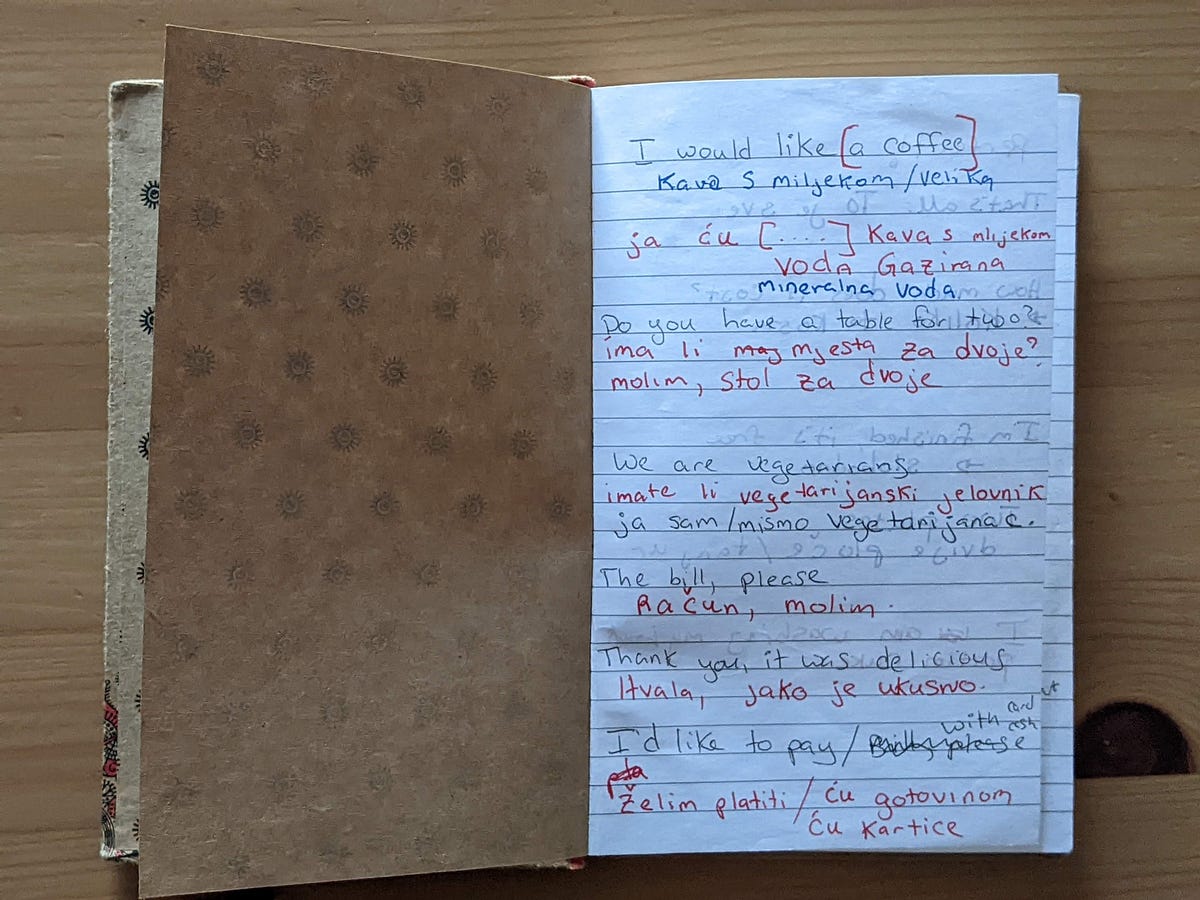 I would like [a coffee]
Kava s miljekom /velika
ja ću [....] Kava s mlijekom
VODA Gazirana
mineralna voda
Do you have a table for two?
ima li mjesta za dvoje?
molim, stol za dvoje
We are vegetarians
imate li vegetarijanski jelovnik
ja sam/mismo vegetarijanac.
The bill, please
Račun, molim.
Thank you, it was delicious
Hvala, jako je ukusno.
card
with cash
I'd like to pay /
Želim platiti / ću gotovinom
ću kartice